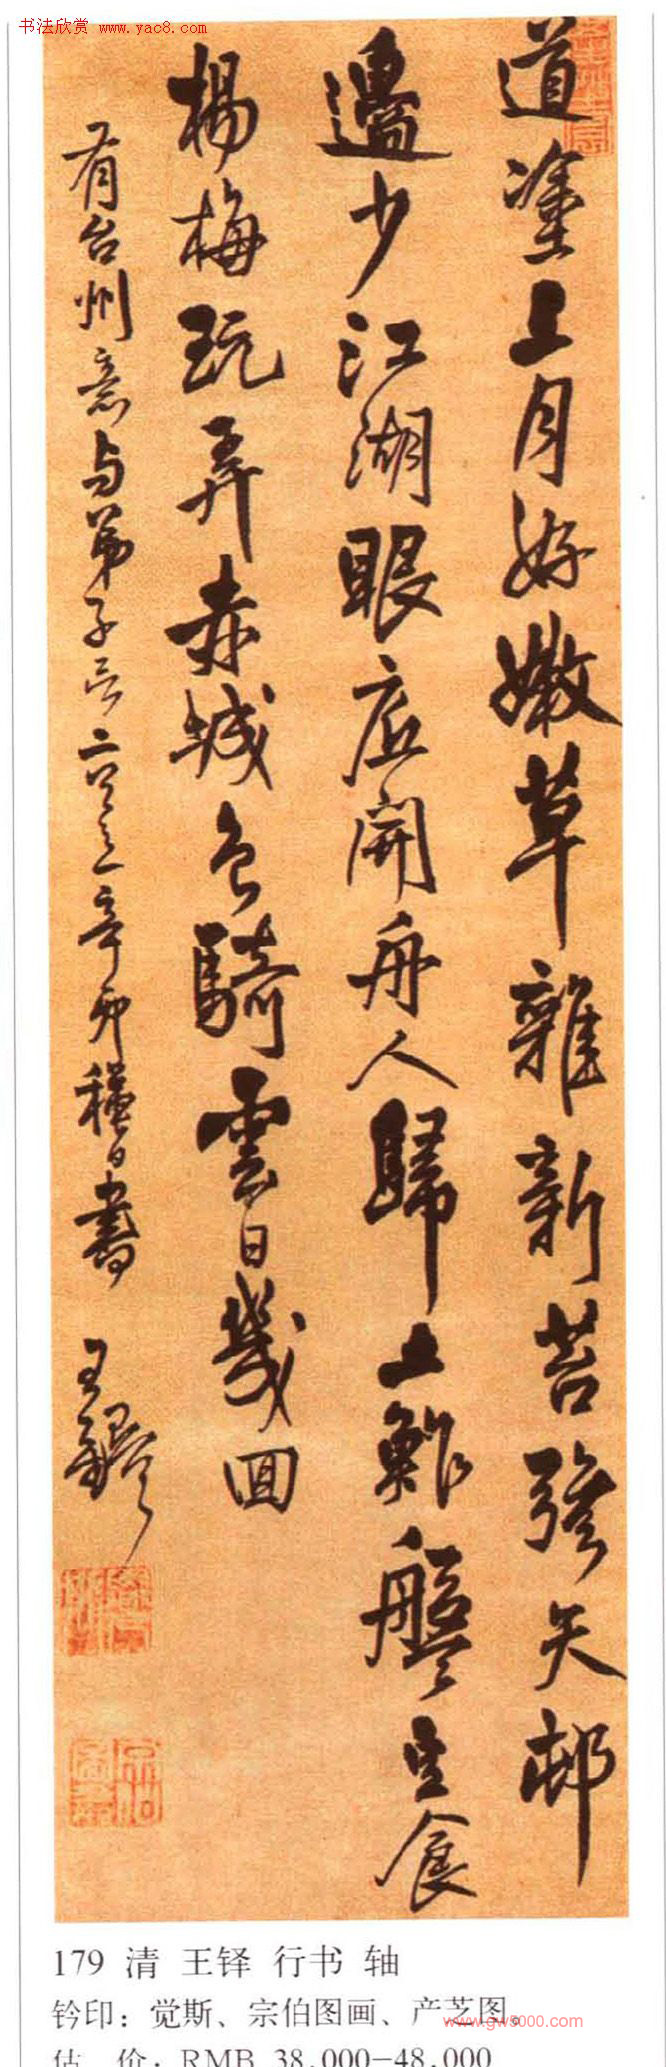 书法欣赏 www.yac8.com
道塗上月好嫩草雜新苔強矢邨
邊少江湖眼底開舟人歸土鮓盤豆食
楊梅玩弄赤城色騎雲日幾回
有台州意与弟子 辛卯 日書 王鐸
179 清 王铎 行书 轴
钤印：觉斯、宗伯图画、产芝图。
www.gws000.com
估 价：RMB 38,000-48,000